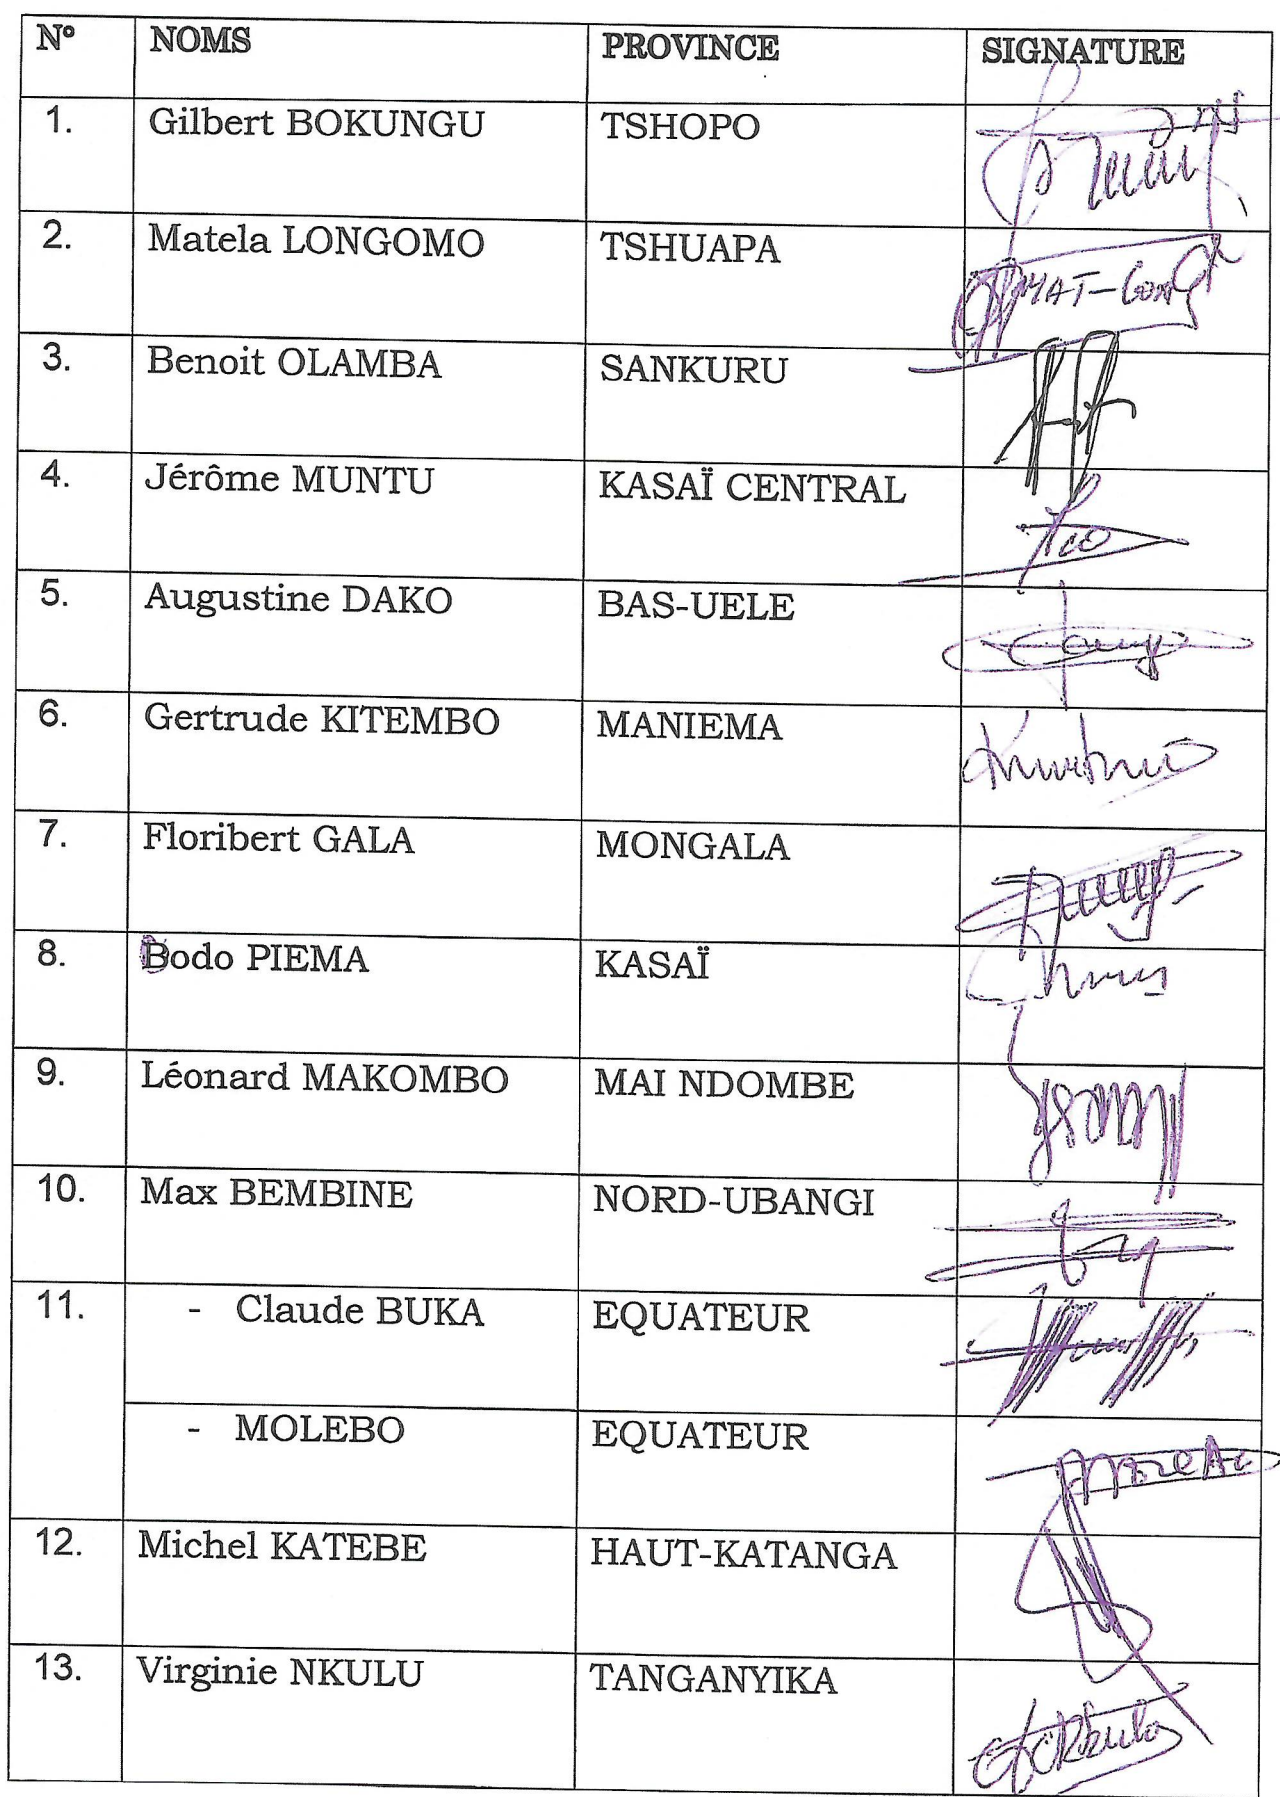 N° NOMS PROVINCE SIGNATURE
1. Gilbert BOKUNGU TSHOPO
2. Matela LONGOMO TSHUAPA
3. Benoit OLAMBA SANKURU
4. Jérôme MUNTU KASAÏ CENTRAL
5. Augustine DAKO BAS-UELE
6. Gertrude KITEMBO MANIEMA
7. Floribert GALA MONGALA
8. Bodo PIEMA KASAÏ
9. Léonard MAKOMBO MAI NDOMBE
10. Max BEMBINE NORD-UBANGI
11. - Claude BUKA EQUATEUR
- MOLEBO EQUATEUR
12. Michel KATEBE HAUT-KATANGA
13. Virginie NKULU TANGANYIKA